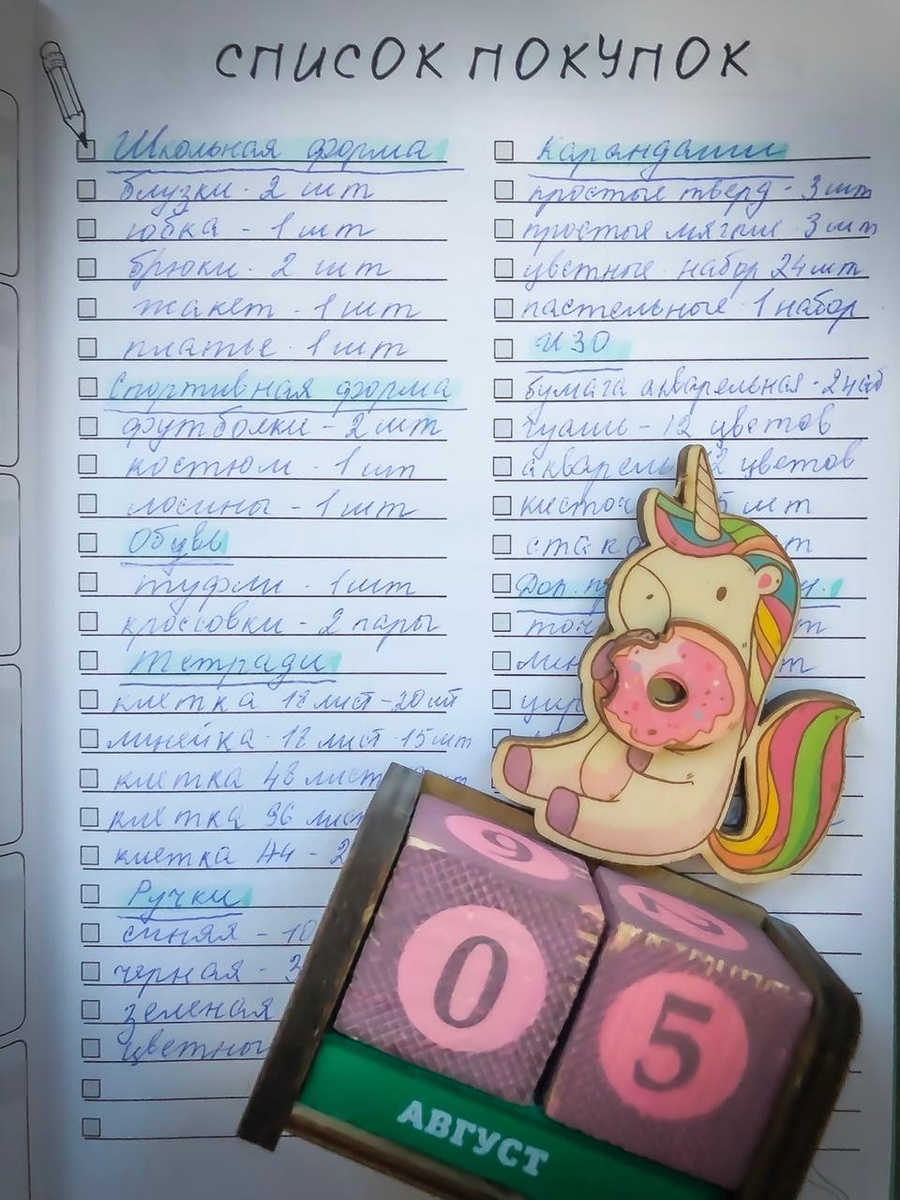 СПИСОК ПОКУПОК
Школьная форма
блузки - 2 шт
юбка - 1 шт
брюки - 2 шт
жакет - 1 шт
платье - 1 шт
Спортивная форма
футболки - 2 шт
костюм - 1 шт
лосины - 1 шт
Обувь
туфли - 1 шт
кроссовки - 2 пары
Тетради
клетка 12 лист - 20 шт
линейка - 12 лист - 15 шт
клетка 48 лист
клетка 96 лист
клетка А4 - 2
Ручки
синяя - 10
черная - 3
зеленая
цветны
Карандаши
простые тверд - 3 шт
простые мягкие 3 шт
цветные набор 24 шт
пастельные 1 набор
ИЗО
бумага акварельная - 2 наб
гуашь - 12 цветов
акварель 12 цветов
кисточ 5 шт
стака
Доп.
точ
лин
цир
9
0 5
АВГУСТ